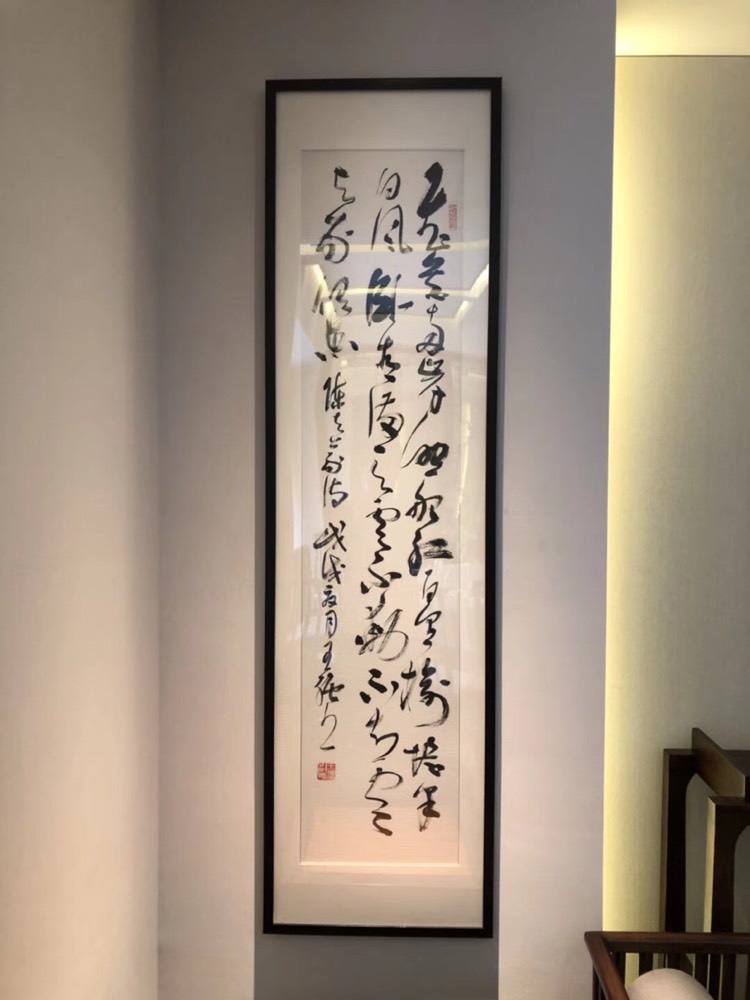 飞花两岸照船红百里榆堤半
日风卧看满天云不动不知云
与我俱东 陈与义诗 戊戌夏月王